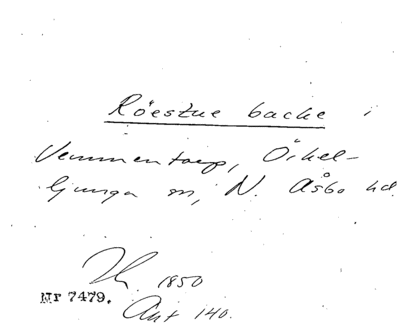 Röestue backe i
Vemmentorp, Örkel-
ljunga sn, N. Åsbo hd.
1850
Nr 7479.
Ant 140.